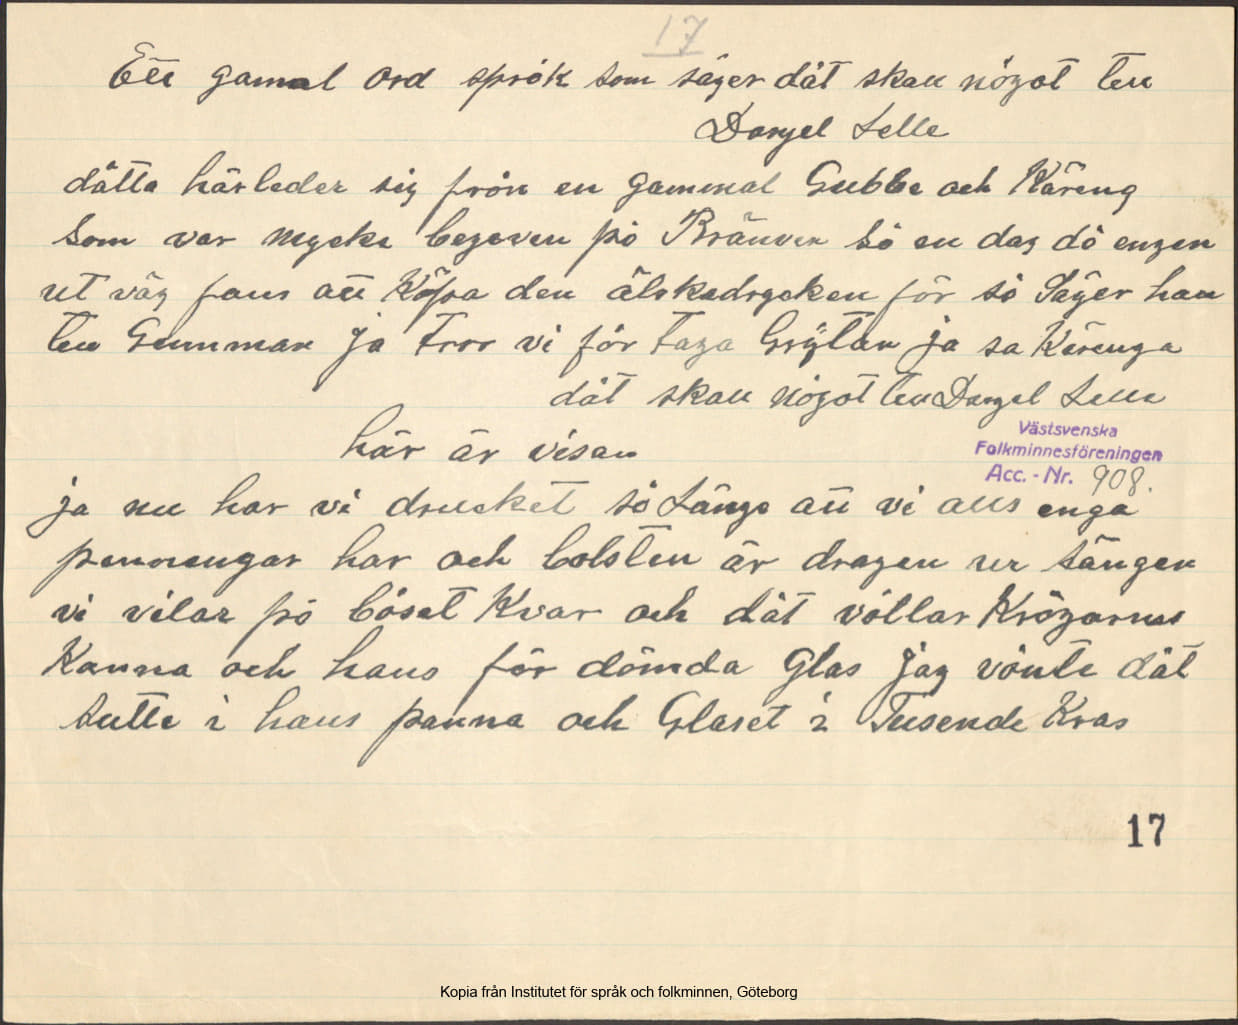 17
Ett gamal ord språk som säger dät skall något till
Dangel Selle
dätta härleder sig från en gammal Gubbe och Käreng
som var mycke begeven på Bränven så en dag då engen
ut väg fans att Köpa den älskadrycken för så Säger han
till Gumman ja tror vi får taga Grÿtan ja sa Kärenga
dät skall något till Dangel Selle
här är visan
Västsvenska
Folkminnesföreningen
Acc. - Nr. 908.
ja nu har vi drucket så Länge att vi alls enga
pennengar har och bolsten är dragen ur sängen
vi vilar på båset Kvar och dät vållar Krögarens
Kanna och hans för dömda Glas jag vånte dät
sutte i hans panna och Glaset i Tusende Kras
17
Kopia från Institutet för språk och folkminnen, Göteborg